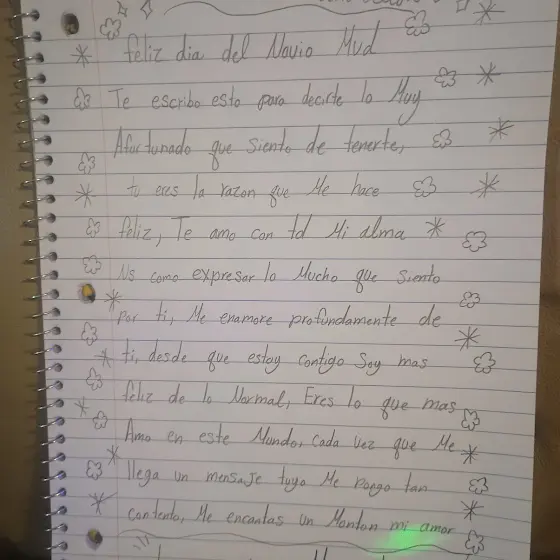 feliz dia del Novio Mvd
Te escribo esto para decirte lo Muy
Afortunado que siento de tenerte,
tu eres la razon que Me hace
feliz, Te amo con td Mi alma
Ns como expresar lo Mucho que siento
por ti, Me enamore profundamente de
ti, desde que estoy contigo Soy mas
feliz de lo Normal, Eres lo que mas
Amo en este Mundo, Cada vez que Me
llega un mensaje tuyo Me pongo tan
contento, Me encantas un Monton mi amor